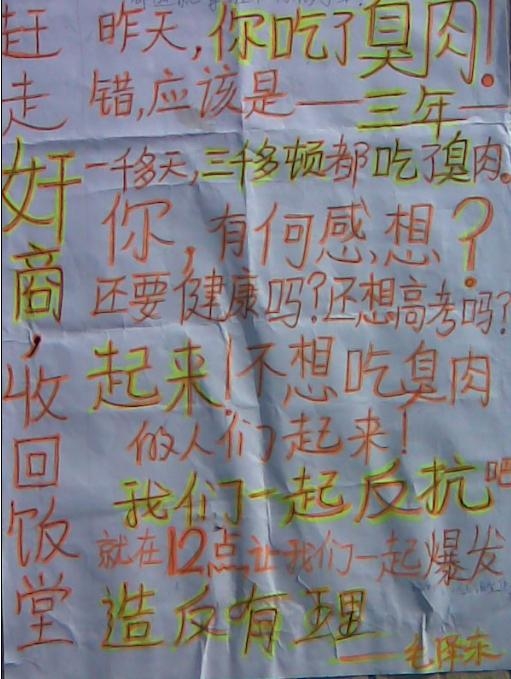 赶走奸商，收回饭堂
昨天，你吃了臭肉！
错，应该是——三年——
一千多天，三千多顿都吃了臭肉。
你，有何感想？
还要健康吗？还想高考吗？
起来！不想吃臭肉
的人们起来！
我们一起反抗吧
就在12点让我们一起爆发
造反有理
——毛泽东